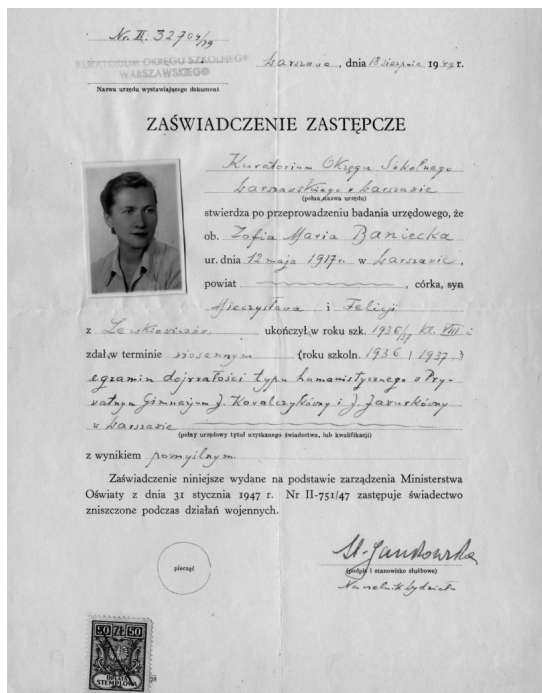 Nr. II. 32704/49
KURATORIUM OKRĘGU SZKOLNEGO
WARSZAWSKIEGO
Warszawa, dnia 18 sierpnia 1949 r.
Nazwa urzędu wystawiającego dokument
ZAŚWIADCZENIE ZASTĘPCZE
Kuratorium Okręgu Szkolnego
Warszawskiego w Warszawie
(pełna nazwa urzędu)
stwierdza po przeprowadzeniu badania urzędowego, że
ob. Zofia Maria Baniecka
ur. dnia 12 maja 1917 r. w Warszawie,
powiat , córka, syn
Mieczysława i Felicji
z Lewkowiczów ukończył w roku szk. 1936/37 kl. VIII i
zdał w terminie wiosennym (roku szkoln. 1936 / 1937 )
egzamin dojrzałości typu humanistycznego w Pry-
watnym Gimnazjum J. Kowalczykówny i J. Jawurkówny
w Warszawie
(pełny urzędowy tytuł uzyskanego świadectwa, lub kwalifikacji)
z wynikiem pomyślnym.
Zaświadczenie niniejsze wydane na podstawie zarządzenia Ministerstwa
Oświaty z dnia 31 stycznia 1947 r. Nr II-751/47 zastępuje świadectwo
zniszczone podczas działań wojennych.
pieczęć
St. Jankowska
(podpis i stanowisko służbowe)
Naczelnik Wydziału
50 ZŁ 50
OPŁATA
STEMPLOWA